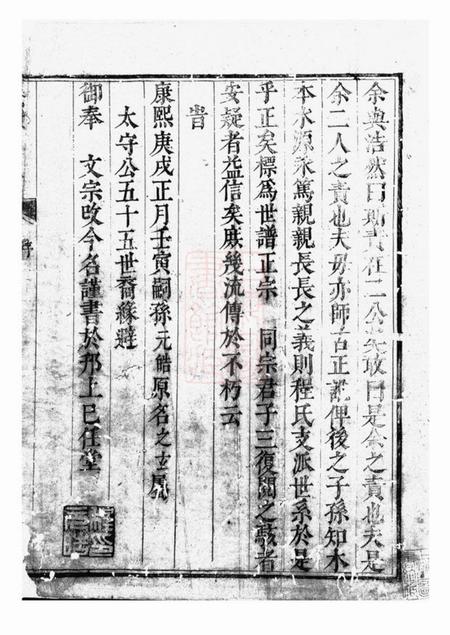 余與浩然曰理責在二公其敢曰是余之責也夫是
余二人之責也夫毋亦師古正訛俾後之子孫知木
本水源永篤親親長長之義則程氏支派世系於是
乎正矣標爲世譜正宗 同宗君子三復閱之駭者
安疑者益信矣庶幾流傳於不朽云
旹
康熙庚戌正月壬寅嗣孫元皓原名之
太守公五十五世裔緣避
御奉 文宗改今名謹書於邗上巳任堂
序